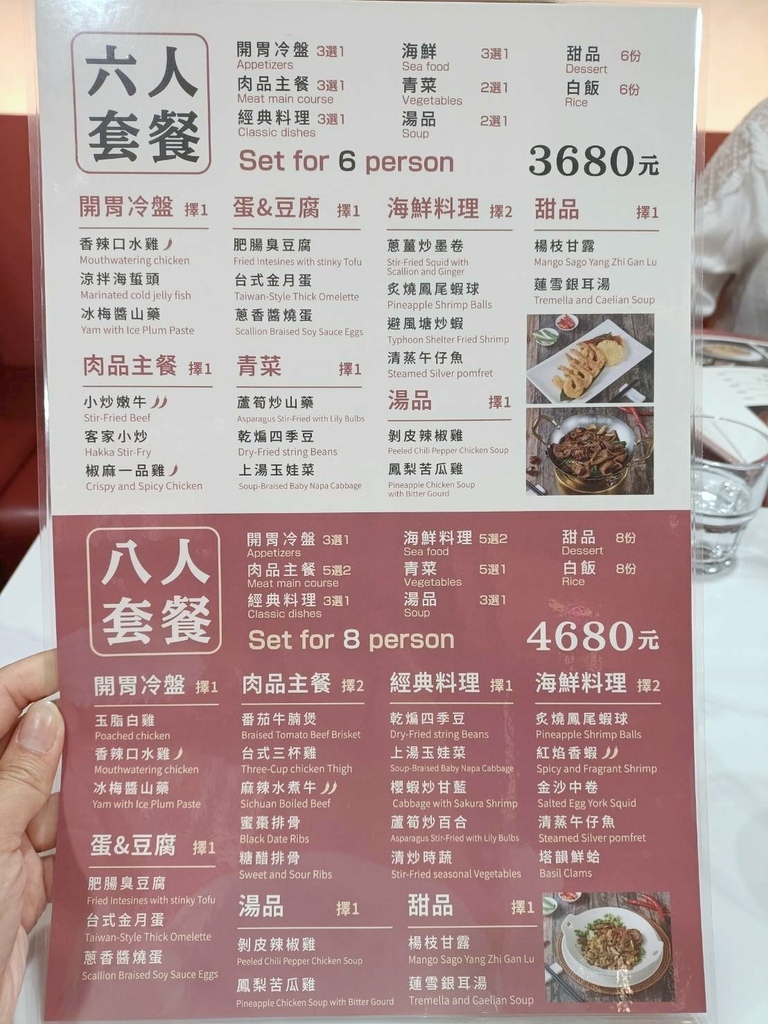 六人
套餐
開胃冷盤 3選1
Appetizers
肉品主餐 3選1
Meat main course
經典料理 3選1
Classic dishes
海鮮 3選1
Sea food
青菜 2選1
Vegetables
湯品 2選1
Soup
甜品 6份
Dessert
白飯 6份
Rice
Set for 6 person
3680元
開胃冷盤 擇1
香辣口水雞
Mouthwatering chicken
涼拌海蜇頭
Marinated cold jelly fish
冰梅醬山藥
Yam with Ice Plum Paste
肉品主餐 擇1
小炒嫩牛
Stir-Fried Beef
客家小炒
Hakka Stir-Fry
椒麻一品雞
Crispy and Spicy Chicken
蛋&豆腐 擇1
肥腸臭豆腐
Fried Intesines with stinky Tofu
台式金月蛋
Taiwan-Style Thick Omelette
蔥香醬燒蛋
Scallion Braised Soy Sauce Eggs
青菜 擇1
蘆筍炒山藥
Asparagus Stir-Fried with Lily Bulbs
乾煸四季豆
Dry-Fried string Beans
上湯玉娃菜
Soup-Braised Baby Napa Cabbage
海鮮料理 擇2
蔥薑炒墨卷
Stir-Fried Squid with
Scallion and Ginger
炙燒鳳尾蝦球
Pineapple Shrimp Balls
避風塘炒蝦
Typhoon Shelter Fried Shrimp
清蒸午仔魚
Steamed Silver pomfret
湯品 擇1
剝皮辣椒雞
Peeled Chili Pepper Chicken Soup
鳳梨苦瓜雞
Pineapple Chicken Soup
with Bitter Gourd
甜品 擇1
楊枝甘露
Mango Sago Yang Zhi Gan Lu
蓮雪銀耳湯
Tremella and Caelian Soup
八人
套餐
開胃冷盤 3選1
Appetizers
肉品主餐 5選2
Meat main course
經典料理 3選1
Classic dishes
海鮮料理 5選2
Sea food
青菜 5選1
Vegetables
湯品 3選1
Soup
甜品 8份
Dessert
白飯 8份
Rice
Set for 8 person
4680元
開胃冷盤 擇1
玉脂白雞
Poached chicken
香辣口水雞
Mouthwatering chicken
冰梅醬山藥
Yam with Ice Plum Paste
蛋&豆腐 擇1
肥腸臭豆腐
Fried Intesines with stinky Tofu
台式金月蛋
Taiwan-Style Thick Omelette
蔥香醬燒蛋
Scallion Braised Soy Sauce Eggs
肉品主餐 擇2
番茄牛腩煲
Braised Tomato Beef Brisket
台式三杯雞
Three-Cup chicken Thigh
麻辣水煮牛
Sichuan Boiled Beef
蜜棗排骨
Black Date Ribs
糖醋排骨
Sweet and Sour Ribs
湯品 擇1
剝皮辣椒雞
Peeled Chili Pepper Chicken Soup
鳳梨苦瓜雞
Pineapple Chicken Soup with Bitter Gourd
經典料理 擇1
乾煸四季豆
Dry-Fried string Beans
上湯玉娃菜
Soup-Braised Baby Napa Cabbage
櫻蝦炒甘藍
Cabbage with Sakura Shrimp
蘆筍炒百合
Asparagus Stir-Fried with Lily Bulbs
清炒時蔬
Stir-Fried seasonal Vegetables
甜品 擇1
楊枝甘露
Mango Sago Yang Zhi Gan Lu
蓮雪銀耳湯
Tremella and Gaelian Soup
海鮮料理 擇2
炙燒鳳尾蝦球
Pineapple Shrimp Balls
紅焰香蝦
Spicy and Fragrant Shrimp
金沙中卷
Salted Egg York Squid
清蒸午仔魚
Steamed Silver pomfret
塔韻鮮蛤
Basil Clams